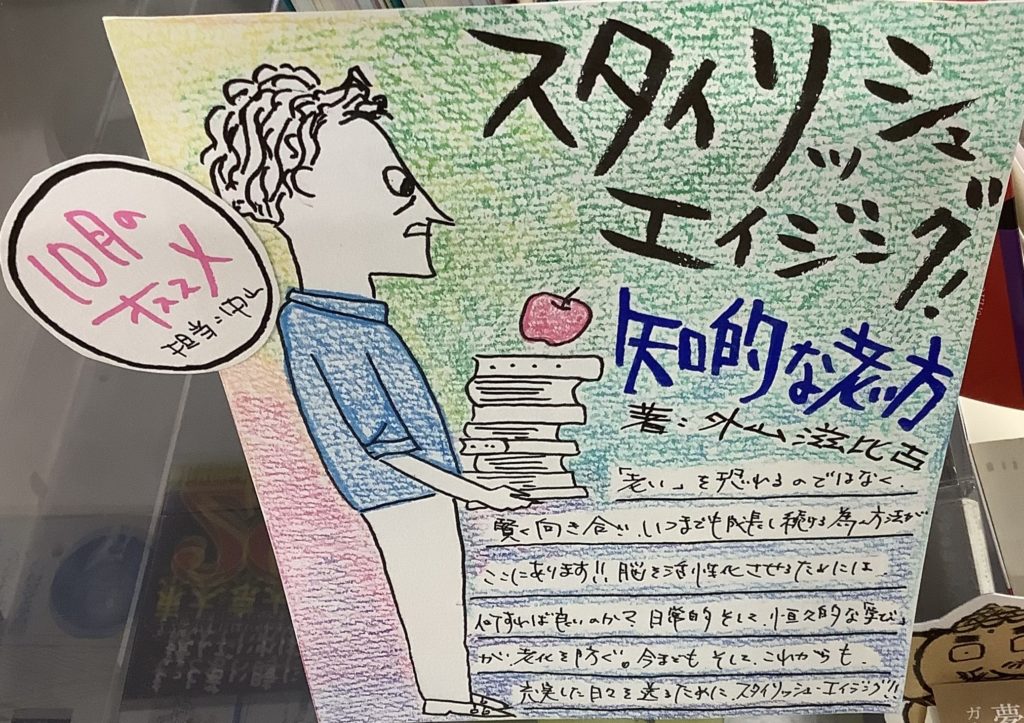 スタイリッシュ
エイジング!
知的な老い方
著:外山滋比古
10月の
オススメ
「老い」を恐れるのではなく、
賢く向き合い、いつまでも成長し続ける為の方法が
ここにあります!! 脳を活性化させるためには
何すれば良いのか? 日常的そして、恒久的な学び
が、老化を防ぐ。今までも そして、これからも、
充実した日々を送るために スタイリッシュ・エイジング!!
ガ 夢